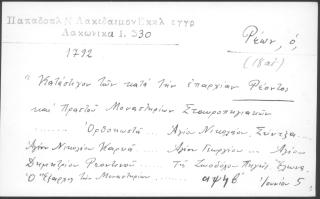 Παπαδοπλ Ν Λακεδαιμον Εκκλ εγγρ
Λακωνικα Ι. 330
Ρέων, ὁ,
(18 αἰ)
1792
"Κατάστιχον τῶν κατὰ τὴν ἐπαρχίαν Ρέοντος
καὶ Πραστοῦ Μοναστηρίων Σταυροπηγιακῶν
........ Ὀρθοκωστᾶ ... Ἁγίου Νικολάου,
Ἁγίου Νικολάου Καρυᾶ ... Ἁγίου Γεωργίου ... Ἁγίου
Δημητρίου Ρεοντινοῦ ... Τῆς Ζωοδόχου Πηγῆς,
Ὁ Ἔξαρχος τῶν Μοναστηρίων ... αψϞβʹ Ἰουνίου 5